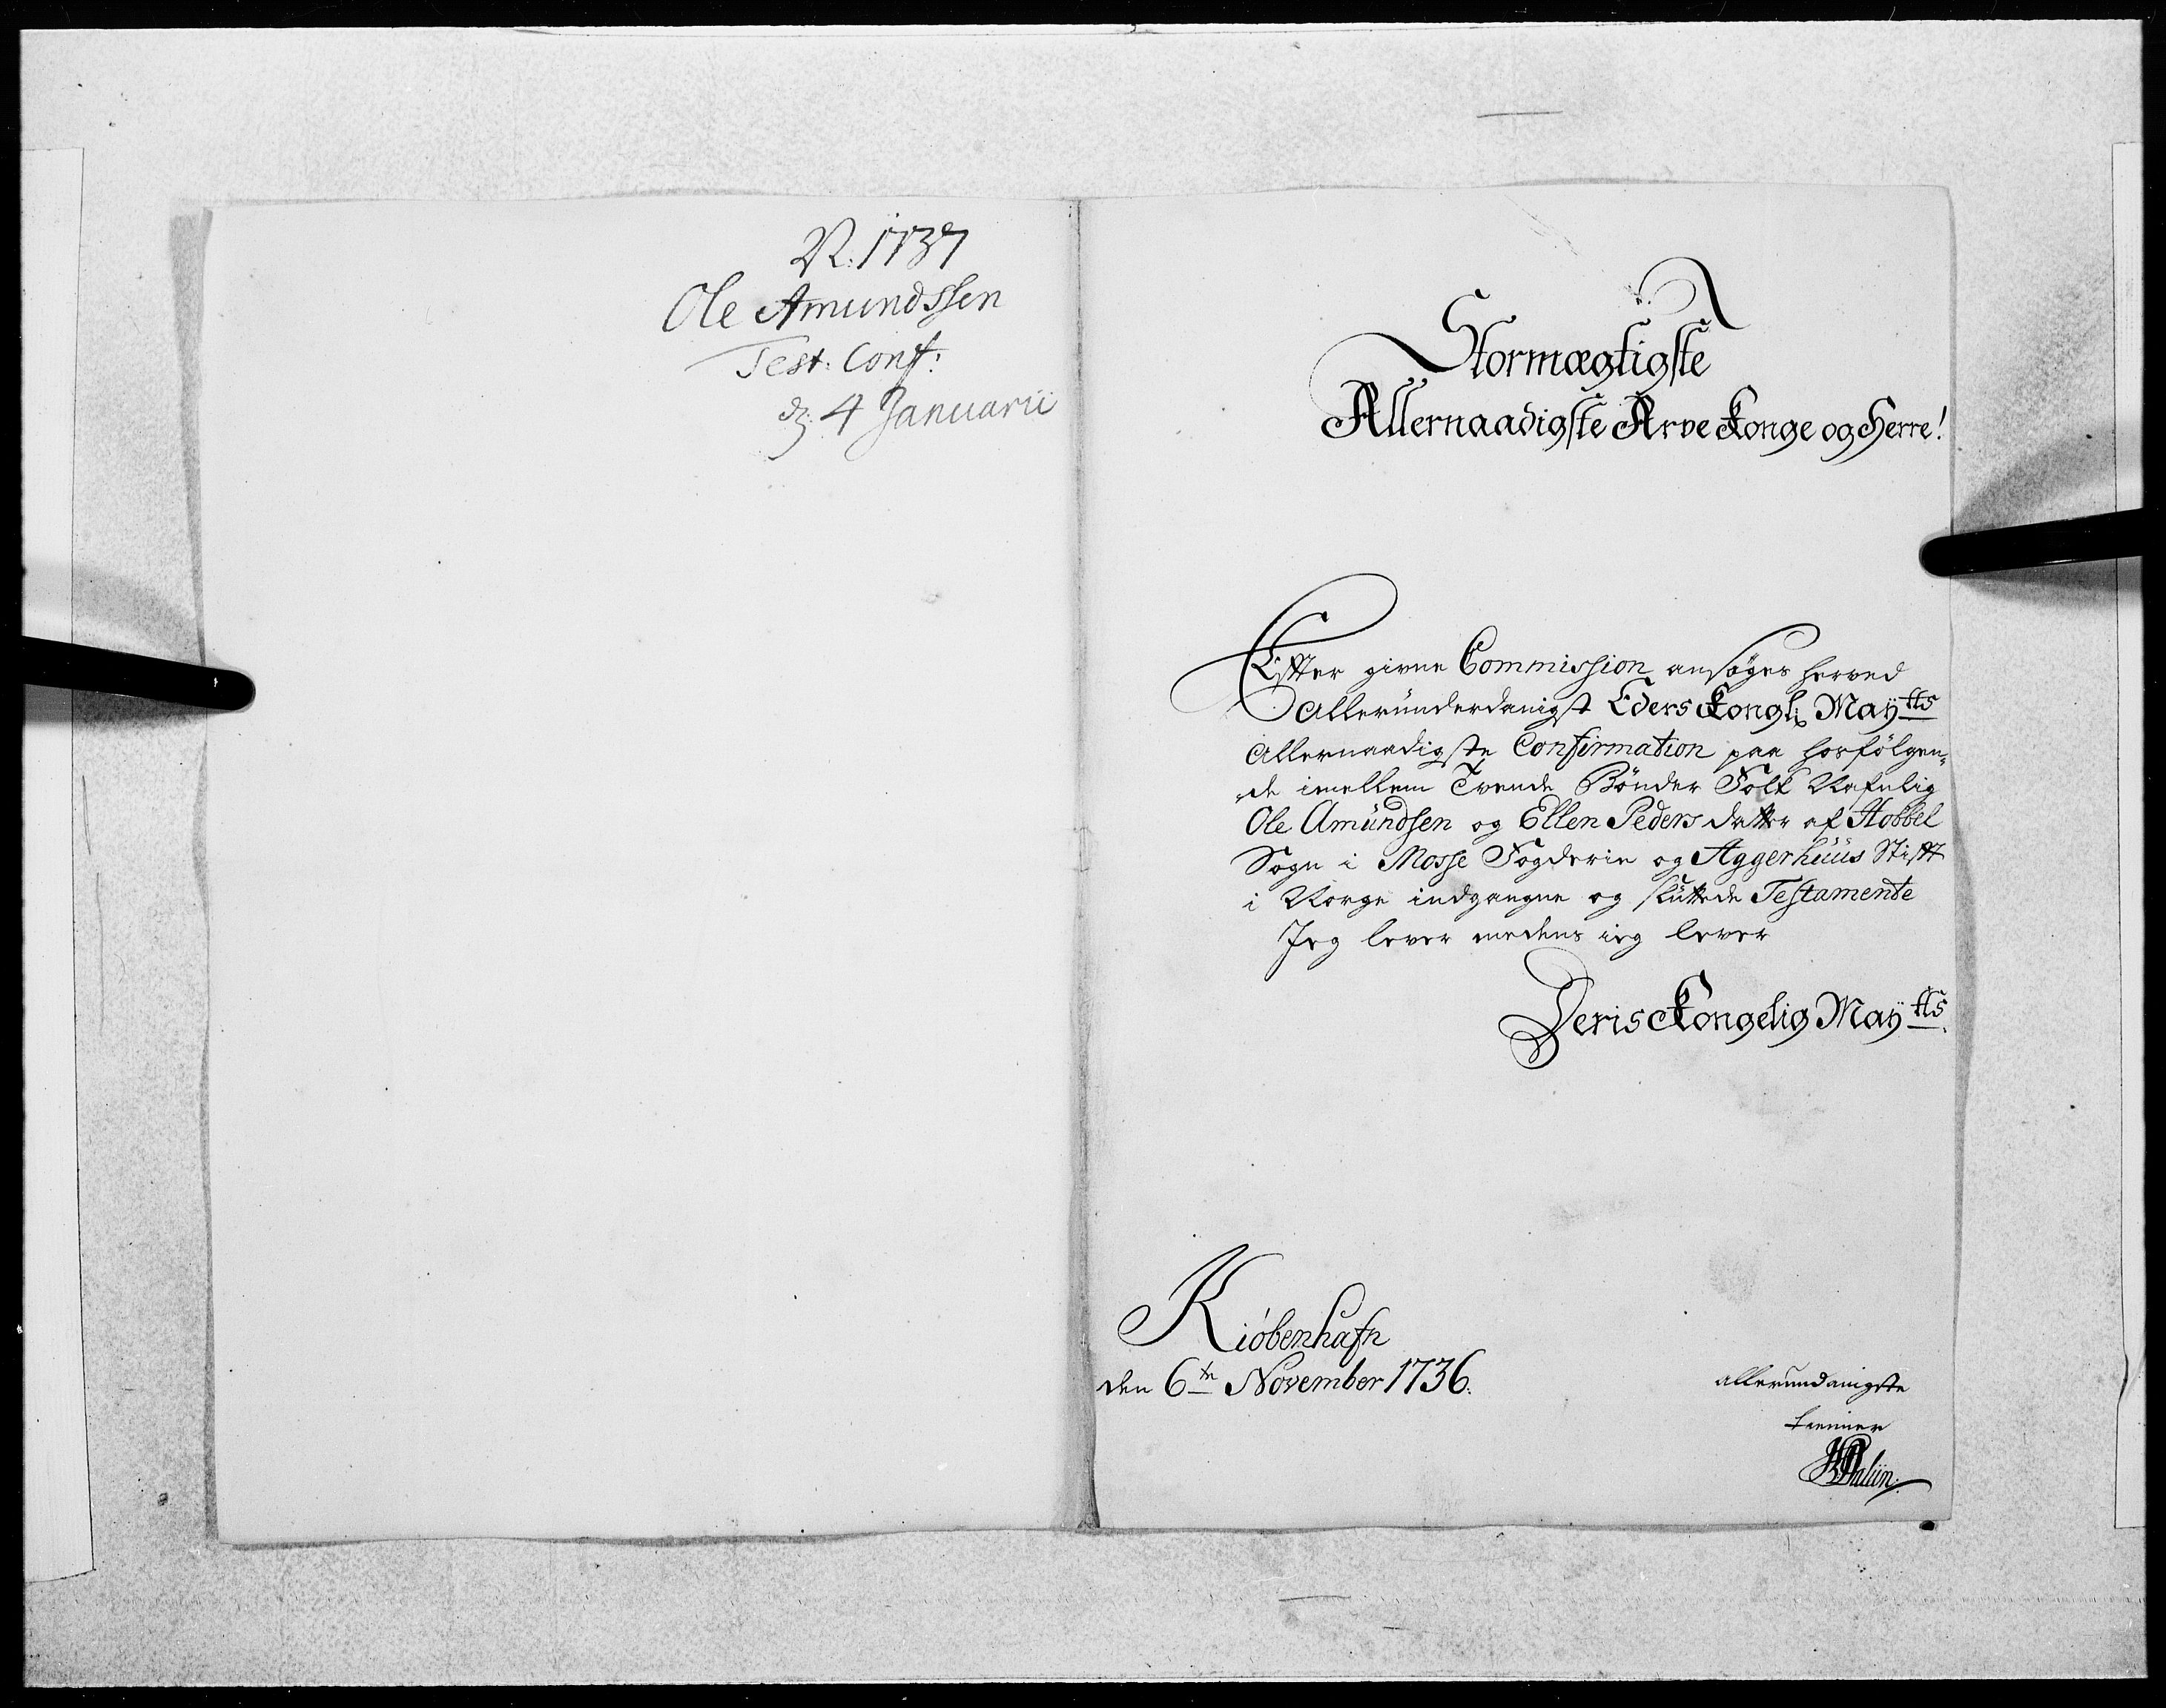 N. 1737
Ole Amundssen
Test: Conf:
d. 4 Januarii
Stormægtigste
Allernaadigste Arve Konge og Herre!
Efter givne Commission ansøges herved
Alleründerdanigst Eders Kongl: Maÿtts
Allernaadigste Confirmation paa hosfølgen-
de imellem Tvende Bönder Folk Nafnlig
Ole Amündsen og Ellen Peders datter af Hobbel
Sogn i Mosse Fogderie og Aggerhüüs Stift
i Norge indgangne og sluttede Testamente
Jeg lever medens ieg lever
Deris Kongelig Maÿtts
Kiöbenhafn
den 6te November 1736.
allerundanigste
tienner